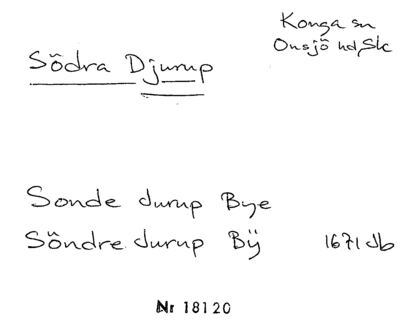 Konga sn
Onsjö hd, Sk
Södra Djurup
Sonde durup Bye
Söndre durup Bÿ 1671 Jb
Nr 18120